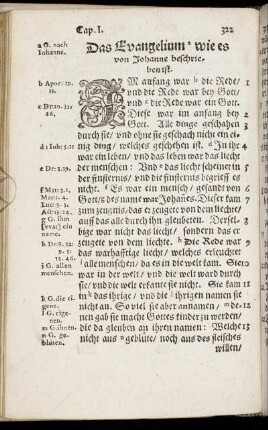 Cap. I. 322
Das Evangelium wie es
von Johanne beschrie,
ben ist.
a G. nach
Iohanne.
b Apoc. 19.
13.
IM anfang war b die Rede/
vnd die Rede war bey Gott/
vnd c die Rede war ein Gott.
Diese war im anfang bey
Gott. Alle dinge geschahen
durch sie/ vnd ohne sie geschach nicht ein ei-
nig ding/ welches geschehen ist. d In ihr
war ein leben/ vnd das leben war das liecht
der menschen: Vnd e das liecht scheinet in
der finsternus/ vnd die finsternus begrieff es
nicht. f Es war ein mensch/ gesandt von
Gott/ des name war Johannes. Dieser kam
zum zeugnis/ das er zeugete von dem liecht/
auf das alle durch ihn gleubeten. Dersel-
bige war nicht das liecht/ sondern das er
zeugete von dem liechte. h Die Rede war
das warhafftige liecht/ welches erleuchtet
i alle menschen/ da es in die welt kam. Sie
war in der welt/ vnd die welt ward durch
sie/ vnd die welt erkante sie nicht. Sie kam
in k das ihrige/ vnd die l ihrigen namen sie
nicht an. So viel sie aber annamen/ m de-
nen gab sie macht Gottes kinder zu werden/
die da gleuben an ihren namen: Welche
nicht aus n geblüte/ noch aus des fleisches
willen/
d i Ioh. 5. 11
g G. ihm
ein
name.
i G. allen
menschen.
k G. die ei-
gene.
l G. eige-
nen.
m G. ihnen.
n G. ge-
blüten.
1
2
3
4
5
6
7
8
9
10
11
12
13